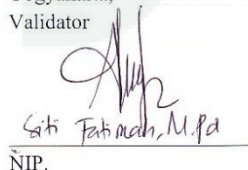 Validator
Siti Fatimah, M.Pd
NIP.